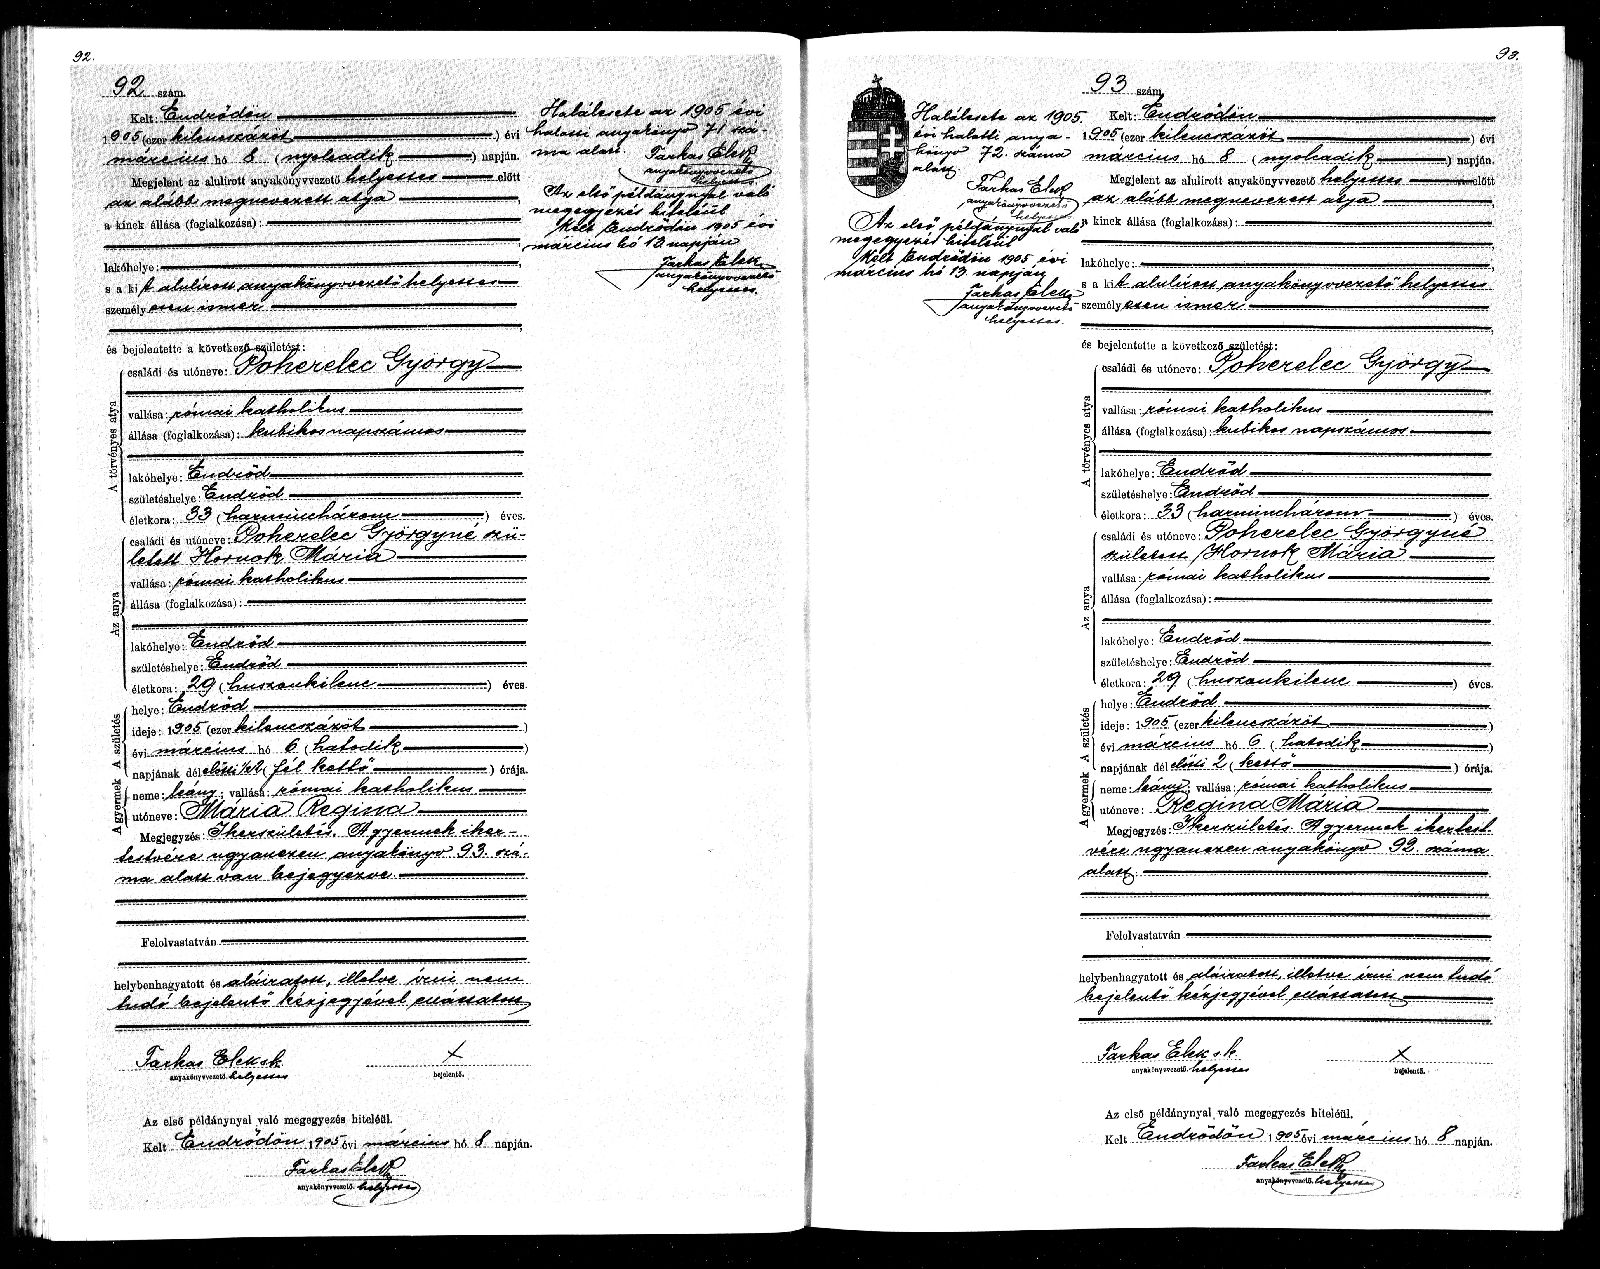 92.
92. szám.
Kelt: Endrődön
1905 (ezer kilenczszázöt ) évi
március hó 8 (nyolcadik ) napján.
Megjelent az alulirott anyakönyvvezető helyettes előtt
az alább megnevezett atya
a kinek állása (foglalkozása):
lakóhelye:
s a kit alulirott anyakönyvvezető helyettes
személyesen ismer
és bejelentette a következő születést:
A törvényes atya
családi és utóneve: Poherelec György
vallása: római katholikus
állása (foglalkozása): kubikos napszámos
lakóhelye: Endrőd
születéshelye: Endrőd
életkora: 33 (harminchárom ) éves.
Az anya
családi és utóneve: Poherelec Györgyné szü-
letett Hornok Mária
vallása: római katholikus
állása (foglalkozása):
lakóhelye: Endrőd
születéshelye: Endrőd
életkora: 29 (huszonkilenc ) éves
A születés
helye: Endrőd
ideje: 1905 (ezer kilenczszázöt )
évi március hó 6 (hatodik )
napjának dél előtti ½2 (fél kettő ) órája.
A gyermek
neme: leány; vallása: római katholikus
utóneve: Mária Regina
Megjegyzés: Ikerszületés. A gyermek iker-
testvére ugyanezen anyakönyv 93. szá-
ma alatt van bejegyezve.
Felolvastatván
helybenhagyatott és aláiratott, illetve írni nem
tudó bejelentő kézjegyével elláttatott
Farkas Elek sk. x
anyakönyvvezető. helyettes bejelentő.
Az első példánynyal való megegyezés hiteléül.
Kelt Endrődön 1905 évi március hó 8 napján.
Farkas Elek
anyakönyvvezető. helyettes
Halálesete az 1905 évi
halotti anyakönyv 71 szá-
ma alatt.
Farkas Elek
anyakönyvvezető
helyettes
Az első példánynyal való
megegyezés hiteléül
Kelt Endrődön 1905 évi
március hó 13. napján
Farkas Elek
anyakönyvvezető
helyettes.
93.
Halálesete az 1905.
évi halotti anya-
könyv 72. száma
alatt.
Farkas Elek
anyakönyvvezető
helyettes
Az első példánynyal való
megegyezés hiteléül
Kelt Endrődön 1905 évi
március hó 13. napján
Farkas Elek
anyakönyvvezető
helyettes.
93 szám.
Kelt: Endrődön
1905 (ezer kilenczszázöt ) évi
március hó 8 (nyolcadik ) napján.
Megjelent az alulirott anyakönyvvezető helyettes előtt
az alább megnevezett atya
a kinek állása (foglalkozása):
lakóhelye:
s a kit alulirott anyakönyvvezető helyettes
személyesen ismer
és bejelentette a következő születést:
A törvényes atya
családi és utóneve: Poherelec György
vallása: római katholikus
állása (foglalkozása): kubikos napszámos
lakóhelye: Endrőd
születéshelye: Endrőd
életkora: 33 (harminchárom ) éves.
Az anya
családi és utóneve: Poherelec Györgyné
született Hornok Mária
vallása: római katholikus
állása (foglalkozása):
lakóhelye: Endrőd
születéshelye: Endrőd
életkora: 29 (huszonkilenc ) éves.
A születés
helye: Endrőd
ideje: 1905 (ezer kilenczszázöt )
évi március hó 6 (hatodik )
napjának dél előtti 2 (kettő ) órája.
A gyermek
neme: leány; vallása: római katholikus
utóneve: Regina Mária
Megjegyzés: Ikerszületés A gyermek ikertest-
vére ugyanezen anyakönyv 92. száma
alatt.
Felolvastatván
helybenhagyatott és aláiratott, illetve írni nem tudó
bejelentő kézjegyével elláttatott
Farkas Elek sk. x
anyakönyvvezető. helyettes bejelentő.
Az első példánynyal való megegyezés hiteléül.
Kelt Endrődön 1905 évi március hó 8 napján.
Farkas Elek
anyakönyvvezető. helyettes